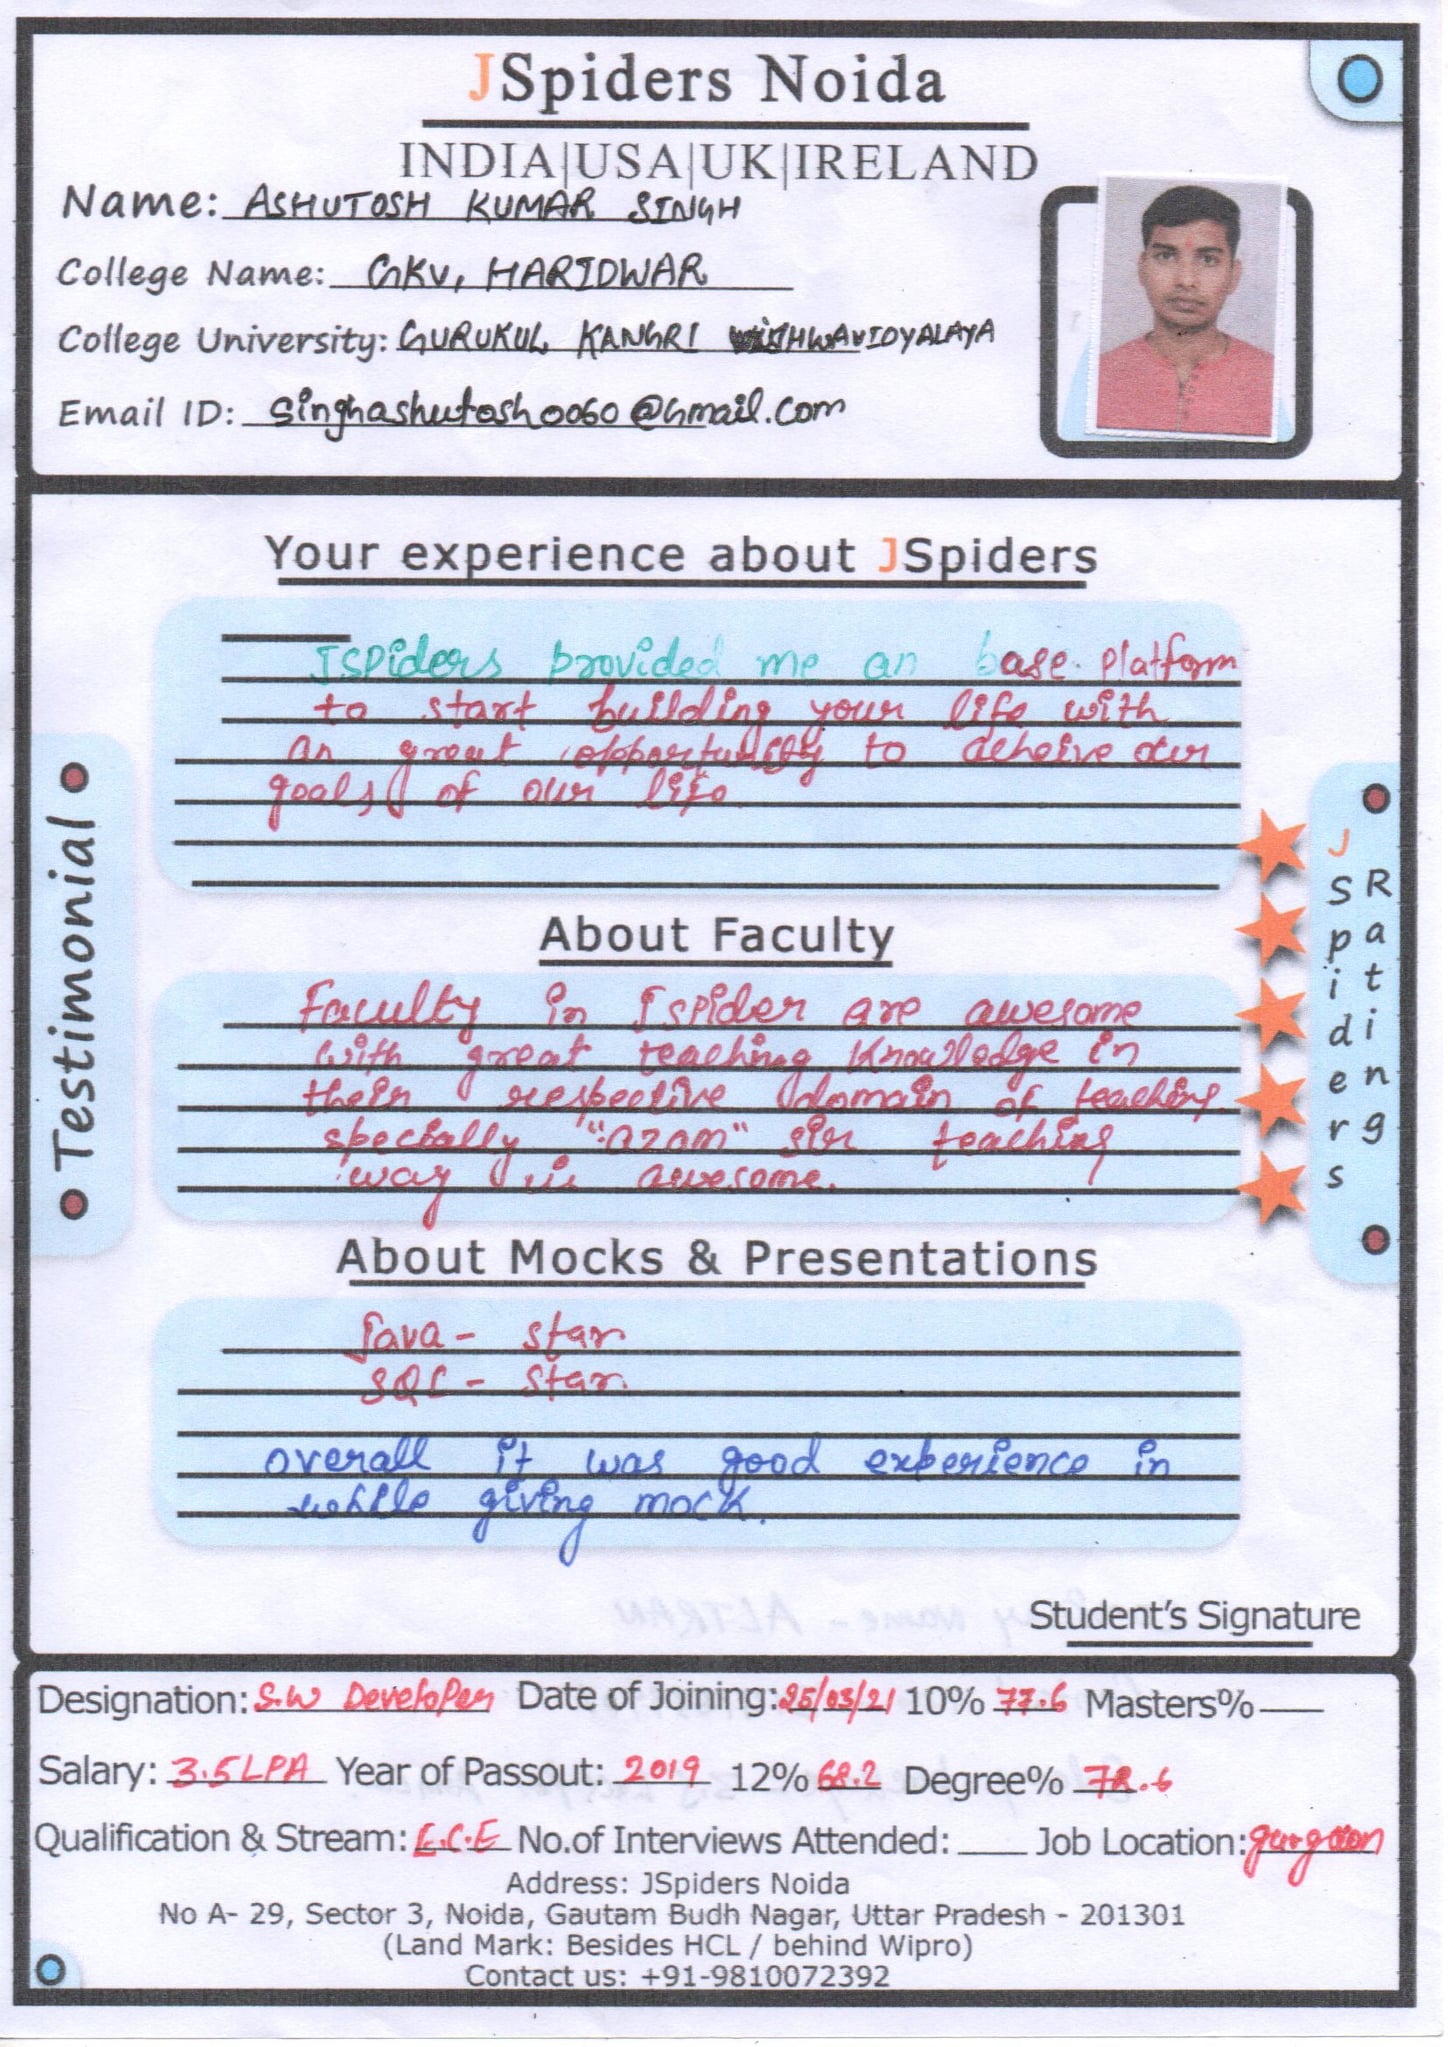 JSpiders Noida
INDIA|USA|UK|IRELAND
Name: ASHUTOSH KUMAR SINGH
College Name: GKV, HARIDWAR
College University: GURUKUL KANGRI VISHWAVIDYALAYA
Email ID: Singhashutosh0060@Gmail.com
Your experience about JSpiders
JSpiders provided me an base platform
to start building your life with
an great opportunity to acheive our
goals of our life
About Faculty
Faculty in Jspider are awesome
with great teaching knowledge in
their respective domain of teaching
specially "azam" sir teaching
way is awesome.
About Mocks & Presentations
Java - star
SQL - star.
overall it was good experience in
while giving mock.
Testimonial
JSpiders
Ratings
Student's Signature
Designation: S.W Developer Date of Joining: 25/03/21 10% 77.6 Masters%
Salary: 3.5LPA Year of Passout: 2019 12% 68.2 Degree% 78.6
Qualification & Stream: E.C.E No.of Interviews Attended: Job Location: gurgaon
Address: JSpiders Noida
No A- 29, Sector 3, Noida, Gautam Budh Nagar, Uttar Pradesh - 201301
(Land Mark: Besides HCL / behind Wipro)
Contact us: +91-9810072392